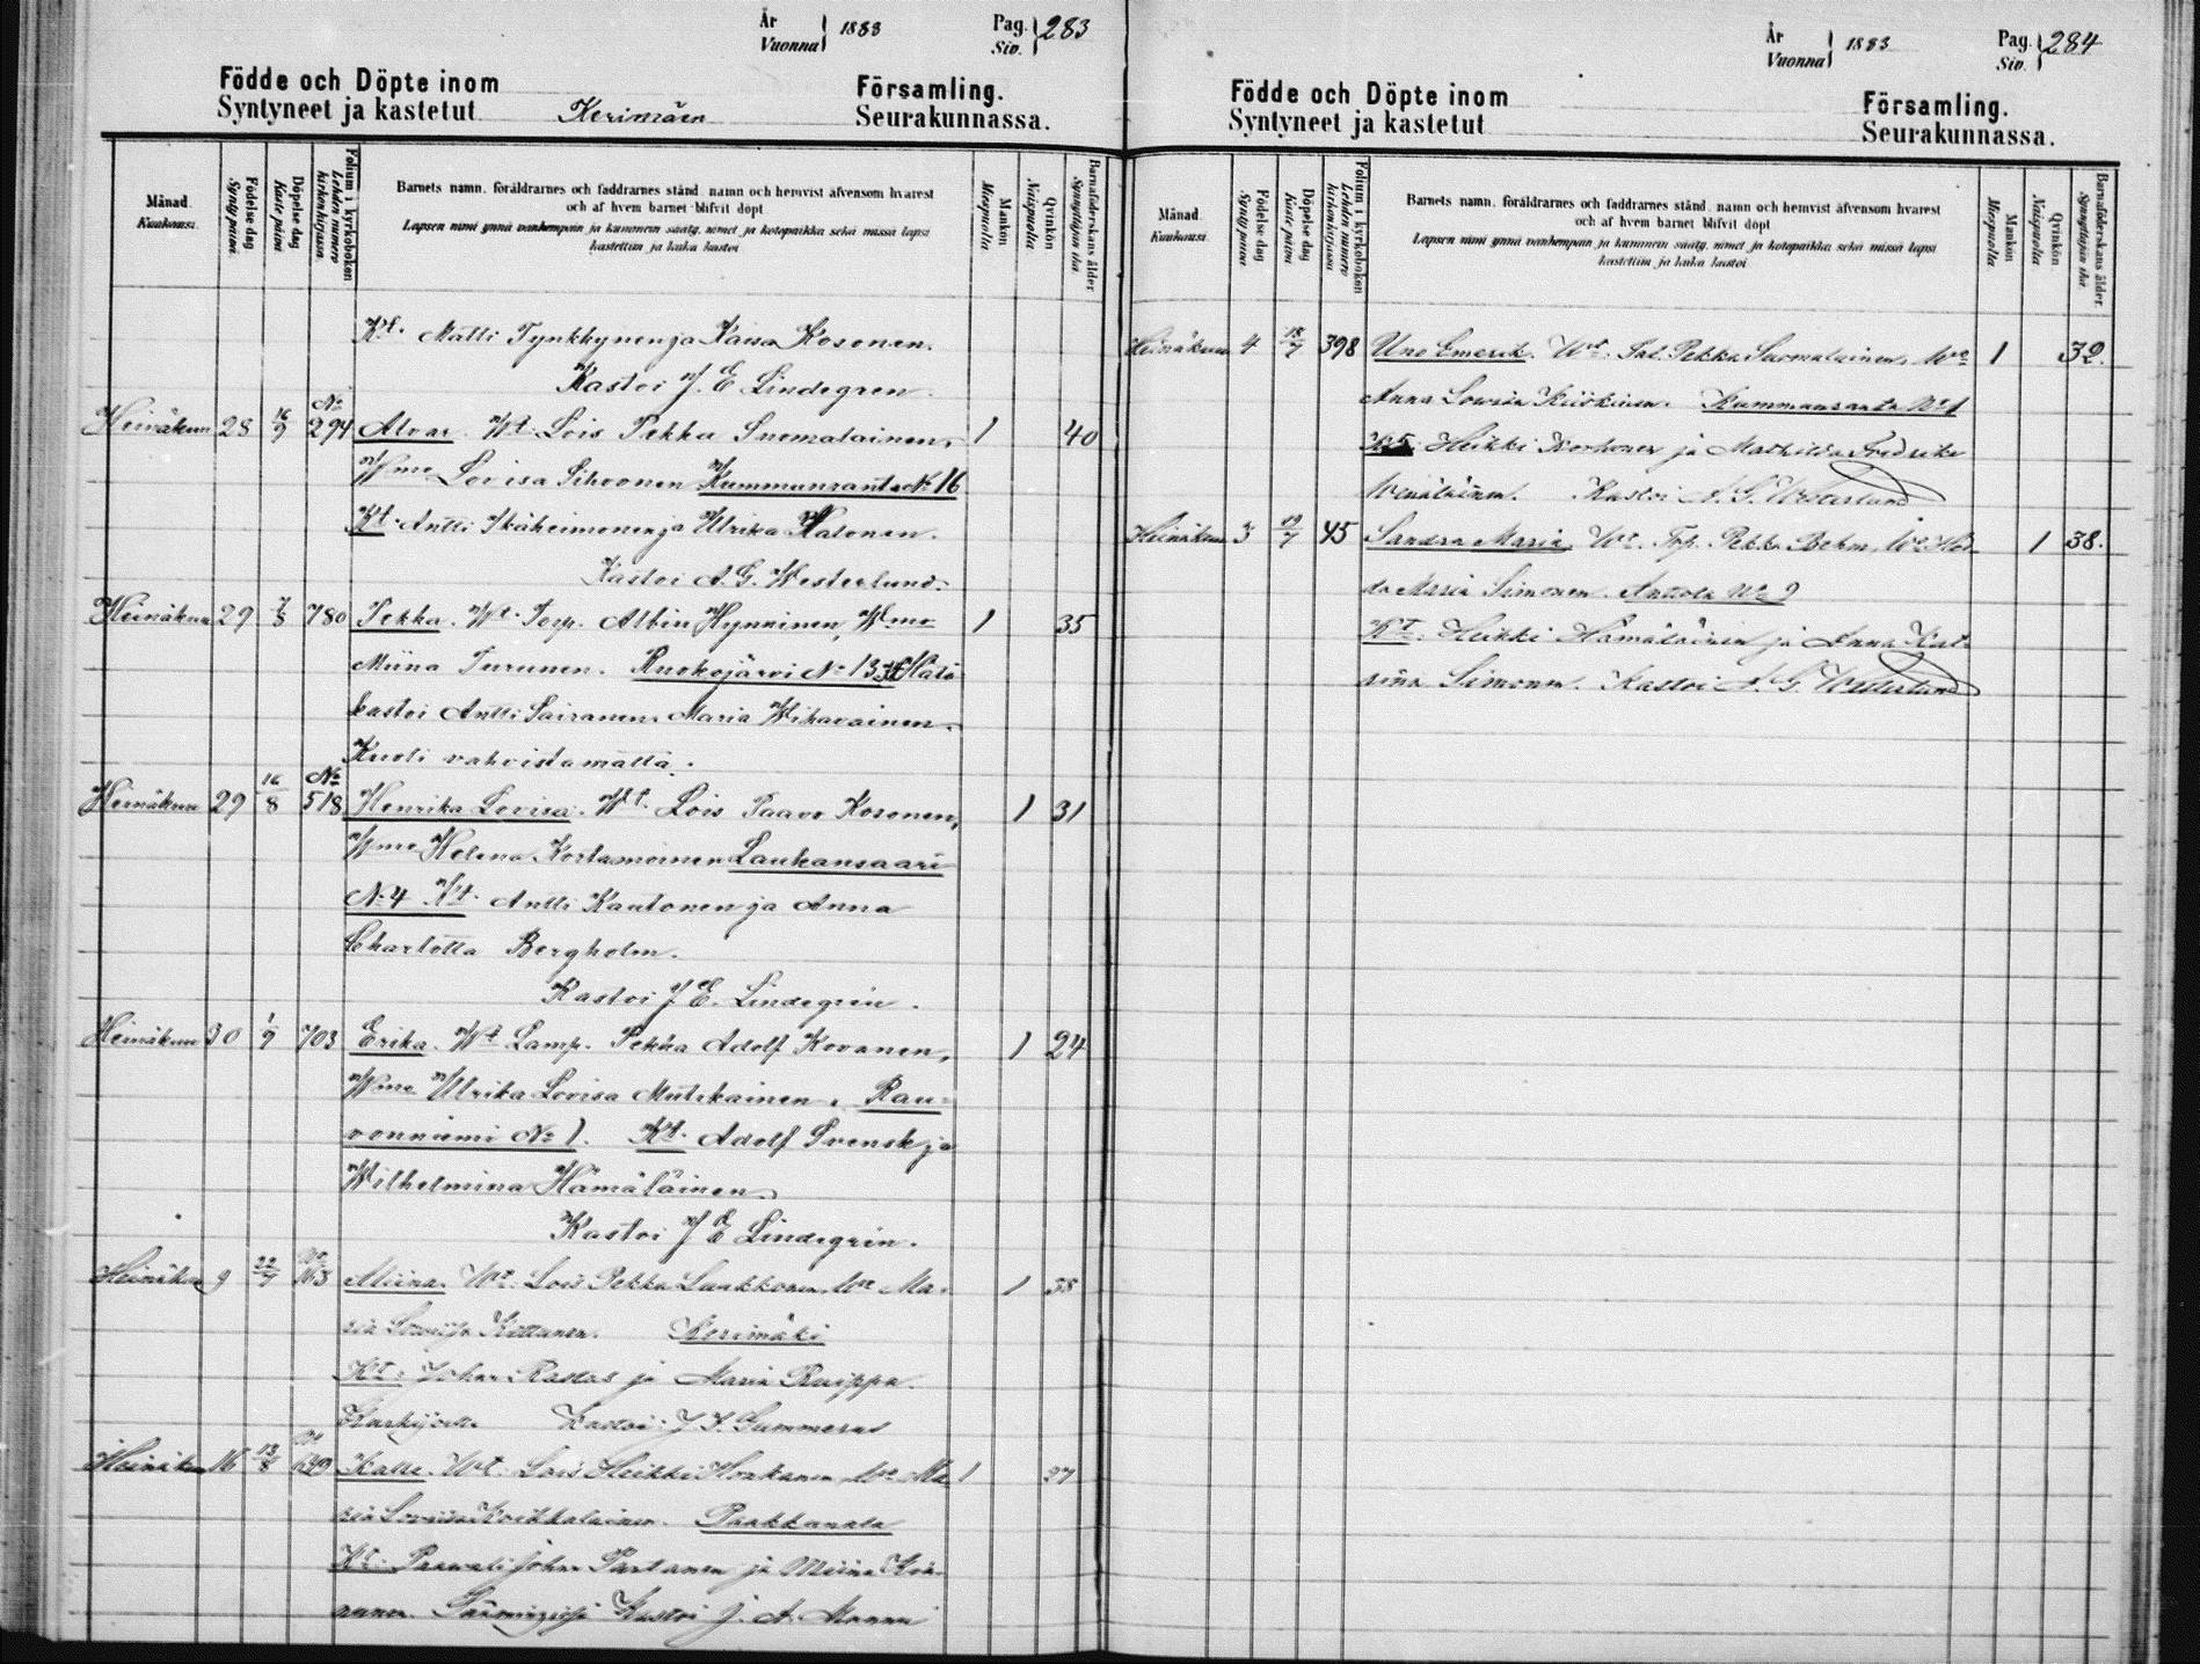 År
Vuonna } 1883
Pag.
Siv. } 283
Födde och Döpte inom
Syntyneet ja kastetut Kerimäen
Församling.
Seurakunnassa.
Månad.
Kuukausi.
Födelse dag
Synty päivä
Döpelse dag
Kaste päivä
Folium i kyrkoboken
Lehden numero
kirkonkirjassa.
Barnets namn, föräldrarnes och faddrarnes stånd, namn och hemvist äfvensom hvarest
och af hvem barnet blifvit döpt
Lapsen nimi ynnä vanhempain ja kummein sääty, nimet ja kotopaikka sekä missä lapsi
kastettiin ja kuka kastoi
Mankön
Miespuolta
Qvinkön
Naispuolta
Barnaföderskans ålder
Synnyttäjän ikä
Kt. Matti Tynkkynen ja Kaisa Kosonen.
Kastoi J. E Lindegren.
Heinäkuu 28 16/9 No 294 Alvar. Wt. Lois Pekka Suomalainen, 1 40
Wmo Lovisa Sihvonen Kummunranta No 16
Kt. Antti Ikäheimonen ja Ulrika Halonen.
Kastoi A. G. Westerlund.
Heinäkuu 29 7/8 780 Pekka. Wt. Torp. Albin Hynninen, Wmo 1 35
Miina Turunen. Ruokojärvi No 13 Hätä
kastoi Antti Sairanen, Maria Wihavainen.
Kuoli vahvistamatta.
Heinäkuu 29 16/8 No 518 Henrika Lovisa. Wt. Lois Paavo Kosonen, 1 31
Wmo Helena Kortamoinen Laukansaari
No 4 Kt. Antti Kautonen ja Anna
Charlotta Bergholm.
Kastoi J E. Lindegren.
Heinäkuu 30 1/9 703 Erika. Wt Lamp. Pekka Adolf Kovanen, 1 24
Wmo Ulrika Lovisa Mutikainen. Rau-
vonniemi No 1. Kt. Adolf Svensk ja
Wilhelmina Hämäläinen.
Kastoi J E Lindegren.
Heinäkuu 9 22/7 Miina. Wt. Lois Pekka Laukkonen, Wo Ma- 1 38
ria Lowiisa Kettunen. Kerimäki
Kt: Johan Rastas ja Maria Ruippa.
Kastoi: J. F. Gummerus
Heinäkuu 16 13/8 Kalle. Wt. Lois Heikki Honkanen, Wo Ma 1 27
ria Lowiisa Koikkalainen. Paakkunala
Kt: Paavali Johan Partanen ja Miina
Kastoi J. A. Manni
År
Vuonna } 1883
Pag.
Siv. } 284
Födde och Döpte inom
Syntyneet ja kastetut
Församling.
Seurakunnassa.
Månad.
Kuukausi.
Födelse dag
Synty päivä
Döpelse dag
Kaste päivä
Folium i kyrkoboken
Lehden numero
kirkonkirjassa
Barnets namn, föräldrarnes och faddrarnes stånd, namn och hemvist äfvensom hvarest
och af hvem barnet blifvit döpt
Lapsen nimi ynnä vanhempain ja kummein sääty, nimet ja kotopaikka sekä missä lapsi
kastettiin ja kuka kastoi
Mankön
Miespuolta
Qvinkön
Naispuolta
Barnaföderskans ålder
Synnyttäjän ikä
Heinäkuu 4 18/7 398 Uno Emerik. Wt. Tal. Pekka Suomalainen, Wo 1 32.
Anna Lowisa Kiiskinen. Kummunranta No 1
Kt. Heikki Korhonen ja Mathilda Fredrika
Wenäläinen. Kastoi A. G. Westerlund
Heinäkuu 3 19/7 45 Sandra Maria, Wt. Trp. Pekka Behm, Wo Hed- 1 38.
da Maria Simonen. Anttola No 9
Kt. Heikki Hämäläinen ja Anna Kat-
riina Simonen. Kastoi A. G. Westerlund